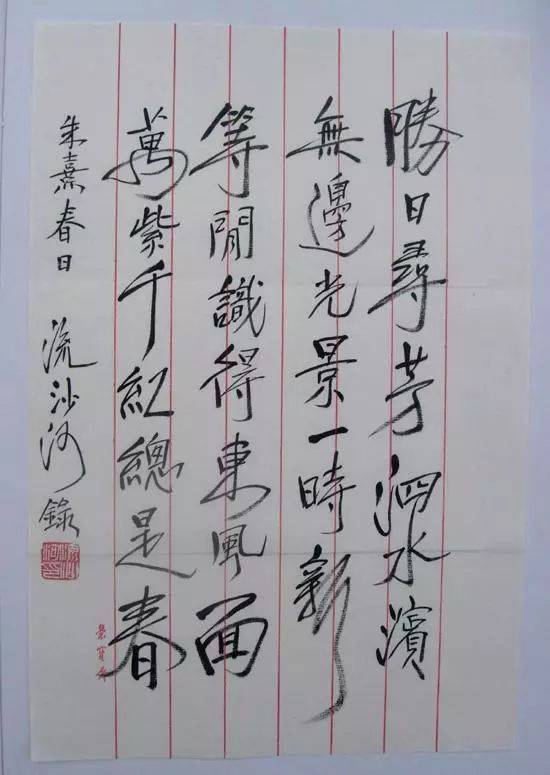 勝日尋芳泗水濱
無邊光景一時新
等閒識得東風面
萬紫千紅總是春
朱熹春日 流沙河錄
榮寶齋